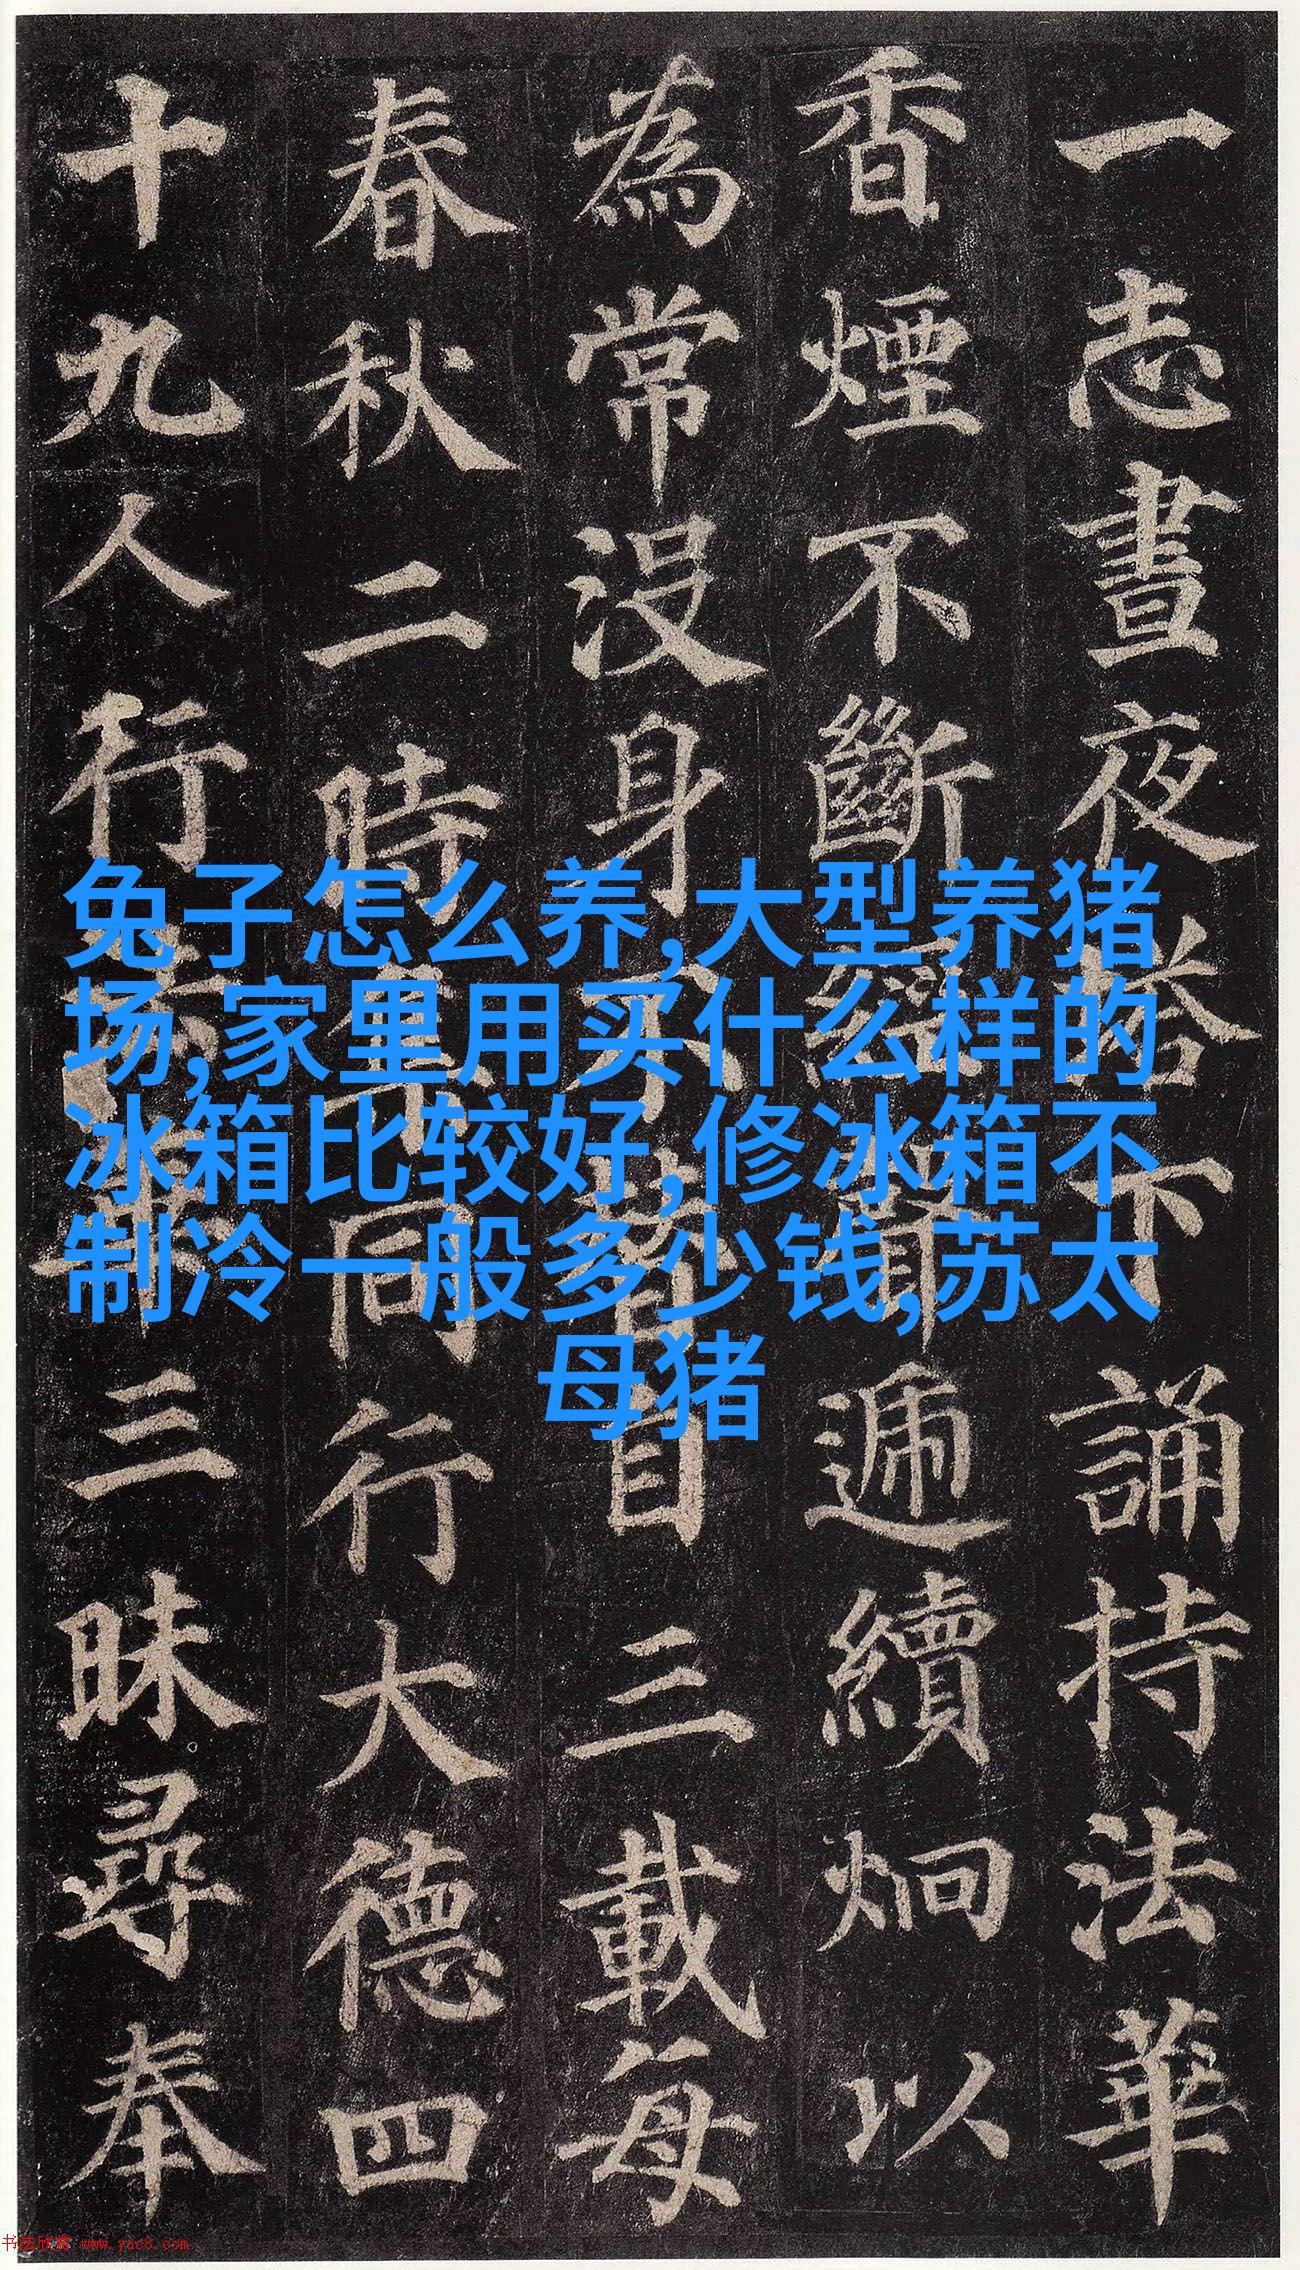 一志晝夜塔下誦持法華
香煙不斷經聲遞續炯以
為常没身不替自三載每
春秋二時集同行大德四
十九人行法華三昧尋奉
兔子怎么养,大型养猪
场,家里用买什么样的
冰箱比较好,修冰箱不
制冷一般多少钱,苏太
母猪
书法欣赏 www.yac8.com